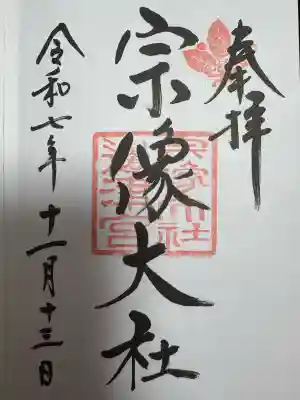 奉拝
宗像大社
令和七年十一月十三日